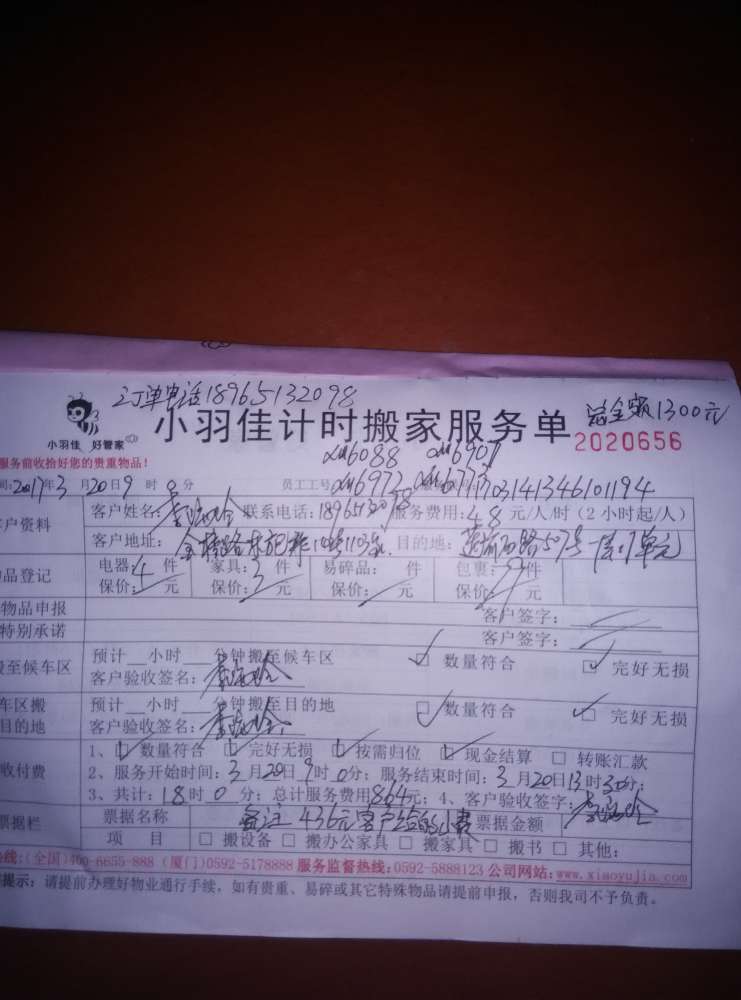 订单电话18965132098
总金额1300元
小羽佳 好管家
小羽佳计时搬家服务单
2020656
服务前收拾好您的贵重物品!
xm6088 xm6907
间:2017年3月20日9时0分 员工工号 xm6973 xm6777
1703141346101194
户资料
客户姓名: 联系电话:18965132098 服务费用:48元/人/时(2小时起/人)
客户地址: 目的地:
品登记
电器:4件 家具:3件 易碎品: 件 包裹: 件
保价: 元 保价: 元 保价: 元 保价: 元
物品申报 客户签字:
特别承诺 客户签字:
搬至候车区
预计 小时 分钟搬至候车区 数量符合 完好无损
客户验收签名:
车区搬
目的地
预计 小时 分钟搬至目的地 数量符合 完好无损
客户验收签名:
收付费
1、数量符合 完好无损 按需归位 现金结算 转账汇款
2、服务开始时间:3月20日9时0分;服务结束时间:3月20日13时30分;
3、共计:18时0分;总计服务费用864元;4、客户验收签字:
票据栏
票据名称 备注436元客户给的小费 票据金额
项 目 搬设备 搬办公家具 搬家具 搬书 其他:
热线:(全国)400-6655-888 (厦门)0592-5178888 服务监督热线:0592-5888123 公司网站:www.xiaoyujia.com
提示:请提前办理好物业通行手续,如有贵重、易碎或其它特殊物品请提前申报,否则我司不予负责。